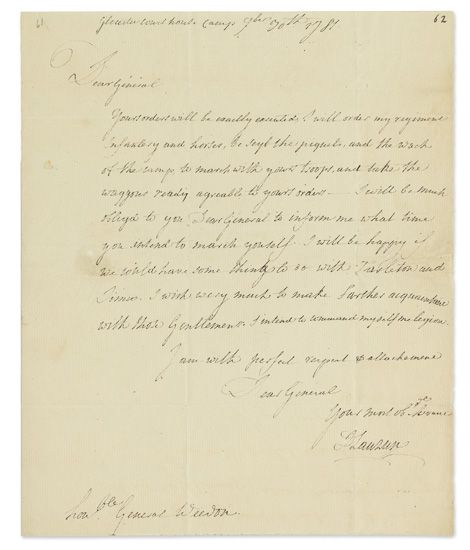 61 62
Gloucester court house Camp 7bre 30th 1781
Dear General
Yours orders will be exactly executed, I will order my regiment
infantery and horses, be seyd the piquets, and the wach
of the camp to march with yours troops, and take the
waggons ready agreable to yours orders — I will be much
obliged to you Dear General to inform me what time
you intend to march yoyself. I will be happy if
we could have some thing to do with Tarleton and
Simco. I wish wery much to make farther acquaintance
with those Gentlemens. I intend to command myself me legion.
I am with perfect respect & attachement
Dear General
Your most ob.
Lauzun
honble General Weedon.